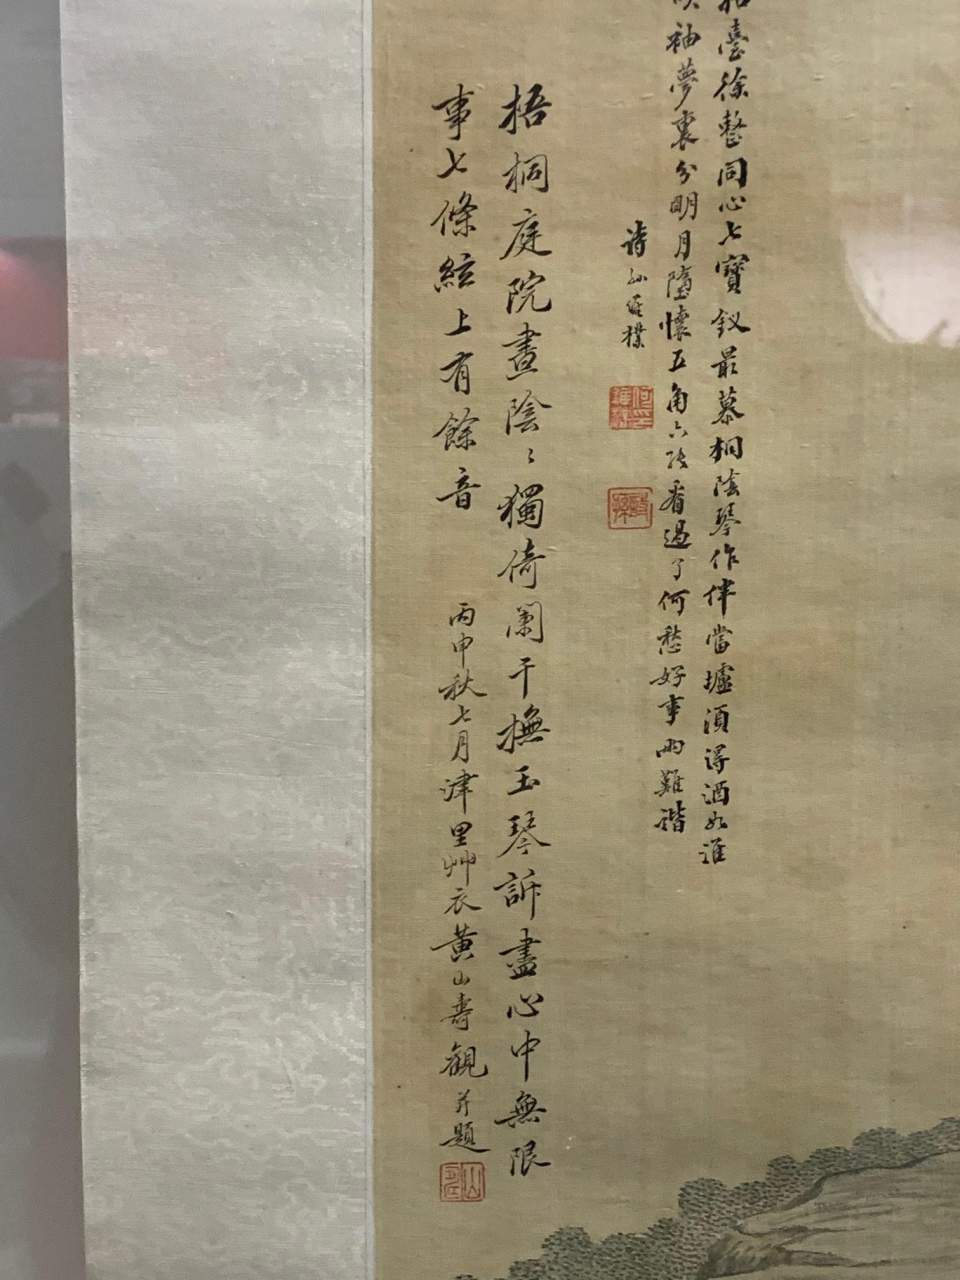 臺徐整同心七寶釵最慕桐陰琴作伴當壚須得酒如淮
袖夢裏分明月墮懷五角六張看過了何愁好事兩難諧
詩孫維樸
梧桐庭院晝陰〻獨倚闌干撫玉琴訴盡心中無限
事七條絃上有餘音
丙申秋七月津里艸衣黃山壽觀并題